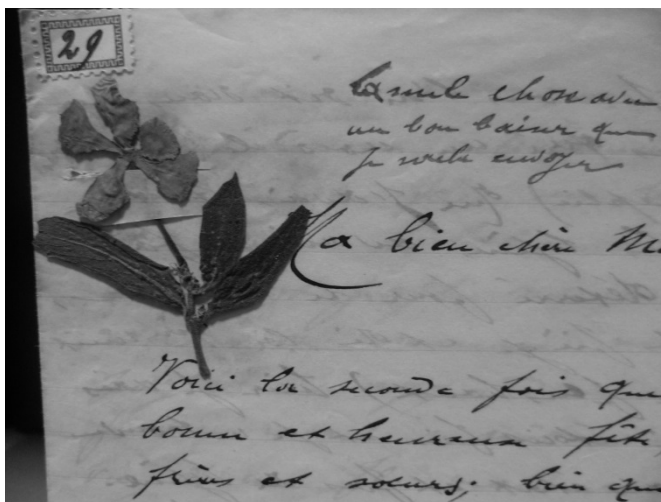 29
La seule chose avec
un bon baiser que
je veule envoyer
Ma bien chère Ma
Voici la seconde fois que
bonne et heureuse fête,
frères et soeurs; bien que